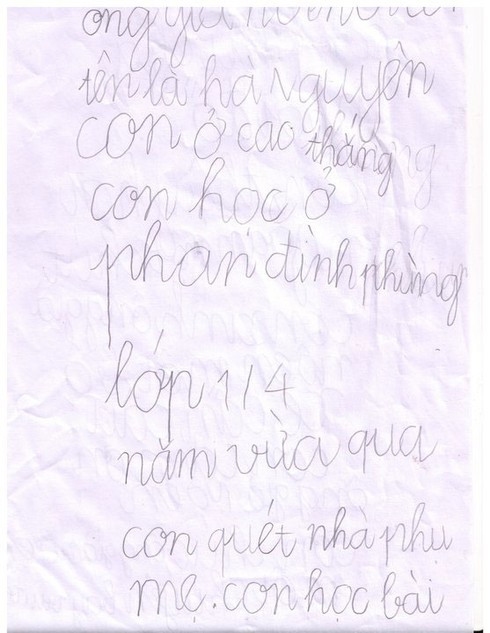 ông già
tên là hà Nguyên
con ở cao thắng
con học ở
phan đình phùng
lớp 1/4
năm vừa qua
con quét nhà phụ
mẹ. con học bài